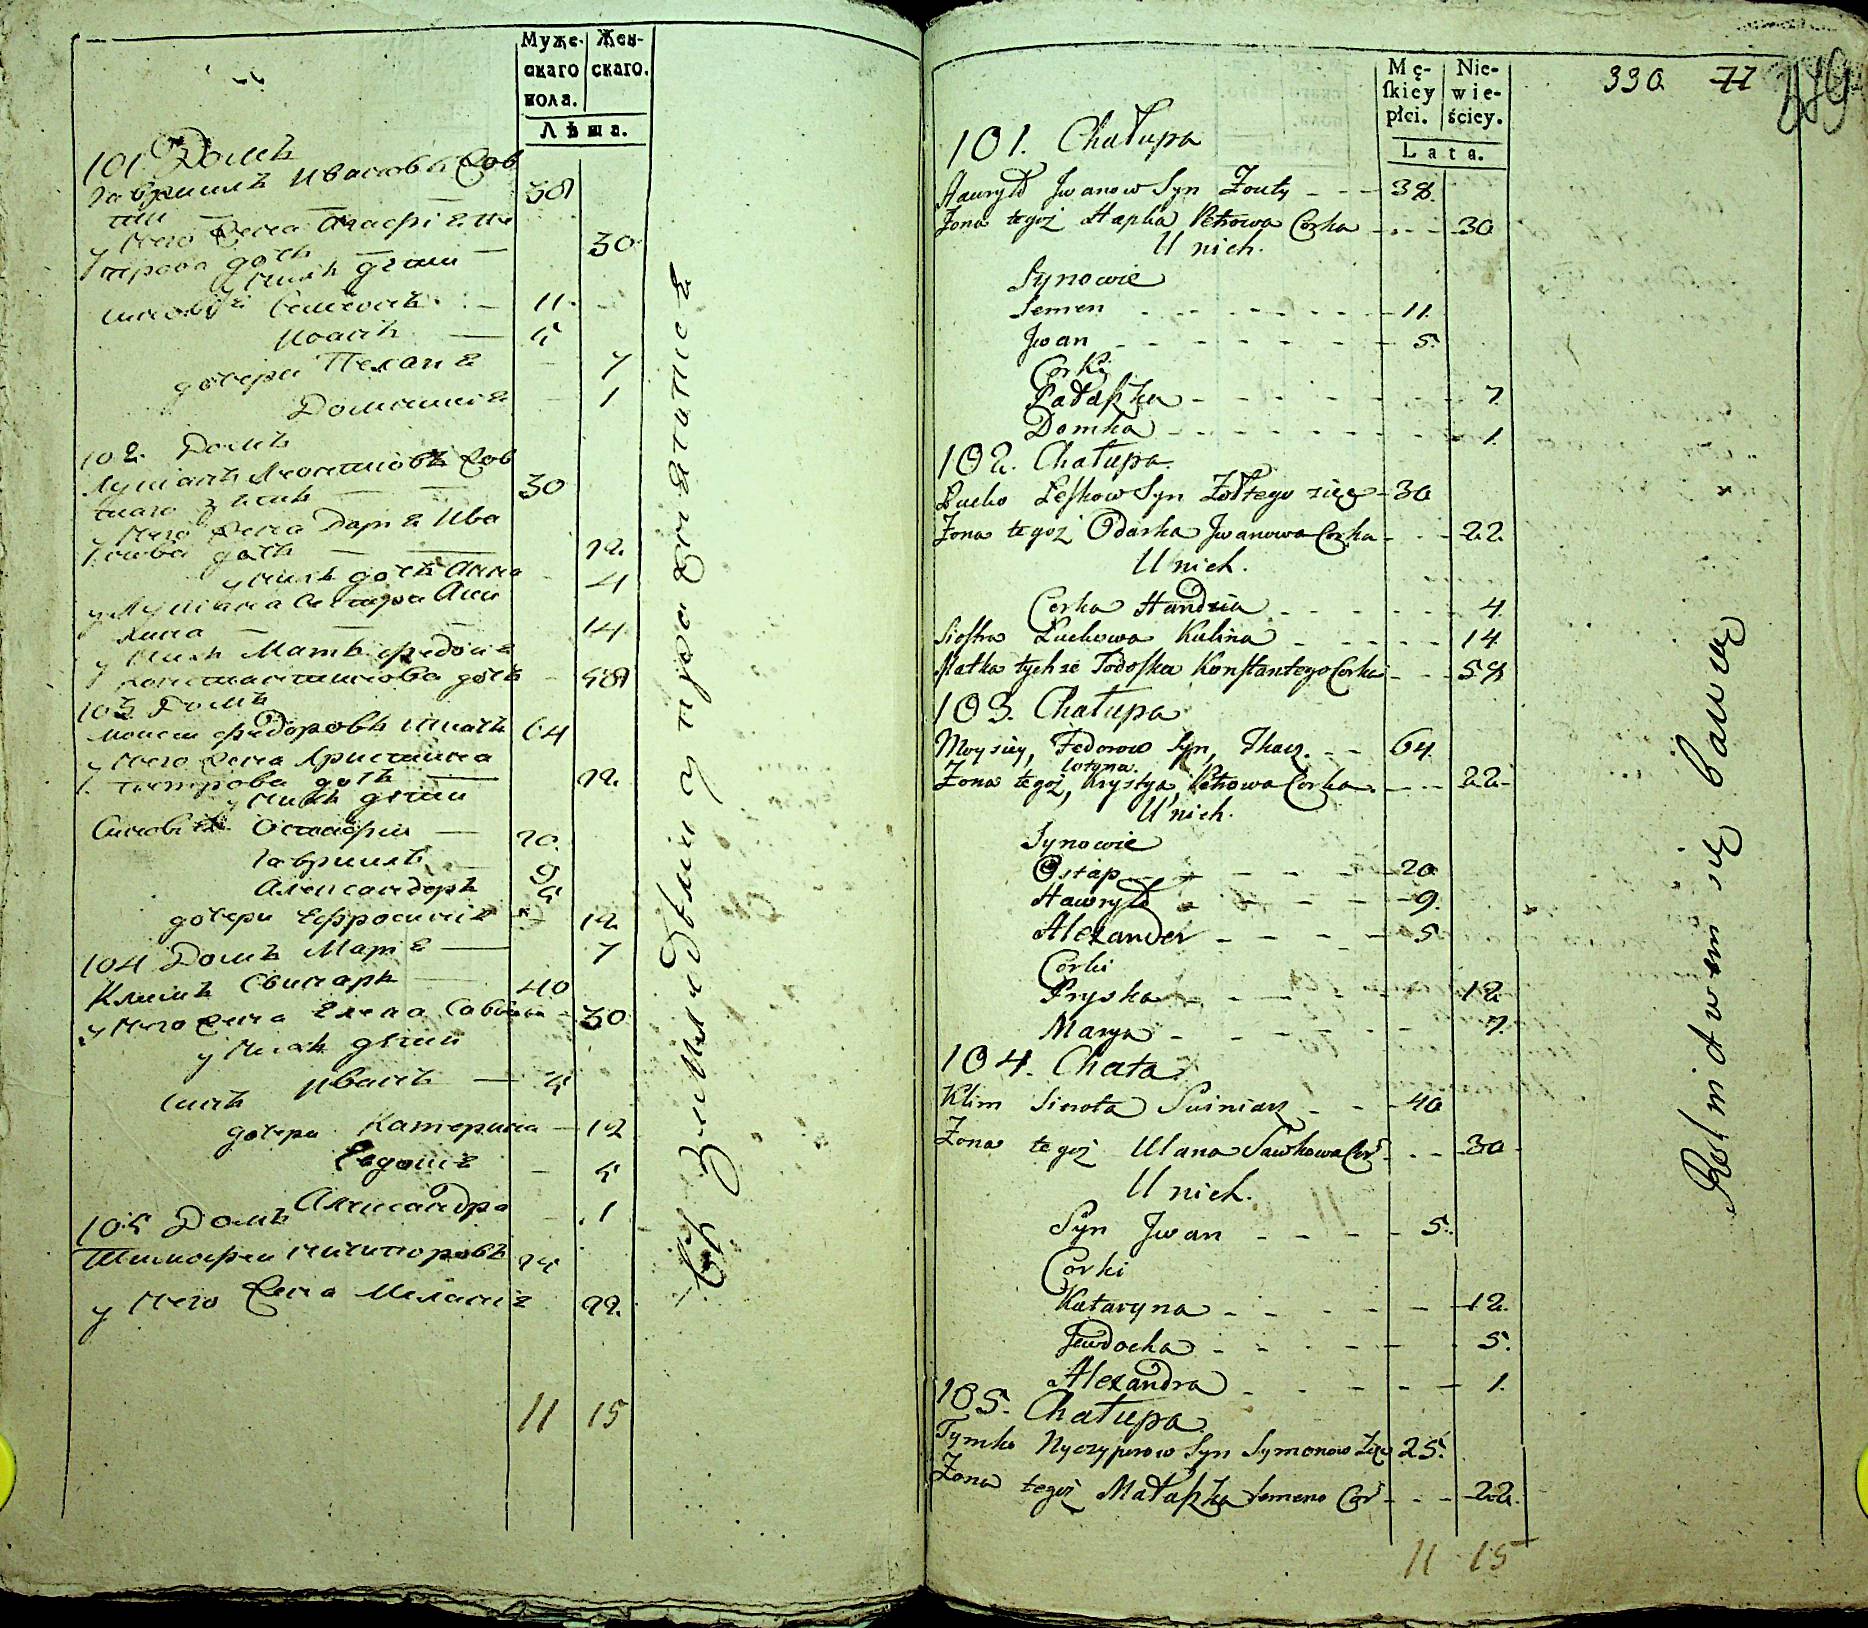 Муже-
скаго
пола.
Жен-
скаго.
Лѣта.
101 Домъ
Гавриилъ Ивановъ Жов
тий — — — 38
у него жена Агафія Пе
трова доть — 30
у нихъ дѣти
синовья Симеонъ — 11
Иоанъ — 5
дочери Пелагія 7
Домникія 1
102 Домъ
Лукіанъ Леонтиовъ Жов
того зять — — 30
у него жена Дарія Ива
нова доть — — 22
у нихъ доть Анна 4
у Лукіана сестра Аки
лина — — 14
у нихъ Мать Федосія
Константинова доть 58
103 Домъ
Моисей Федоровъ ткачь 64
у него жена Христина
Петрова доть — 22
у нихъ дѣти
Синовья Остафій — 20
Гавриилъ — 9
Александеръ 5
дочери Ефросинія 12
104 Домъ Марія — 7
Климъ Свинарь — 40
у него жена Елена Савина 30
у нихъ дѣти
синъ Иванъ — 5
дочери Катерина — 12
Евдокія — 5
Александра 1
105 Домъ
Тимофей Никипоровъ 25
у него жена Меланія 22
11 15
Съ земледѣлія пропитаніе
Mę-
skiey
płci.
Nie-
wie-
ściey.
Lata.
330 77
101. Chałupa
Hawryło Jwanow Syn Żouty - - - 38.
Żona tegoż Hapka Petrowa Corka - - - 30
U nich.
Synowie
Semen - - - - - - 11.
Jwan - - - - - - 5.
Corki
Pałaszka - - - - - - 7.
Domka - - - - - - 1.
102. Chałupa.
Łucko Leśkow Syn Żółtego zięć - 30
Żona tegoż Odarka Jwanowa Corka - - - 22.
U nich.
Corka Handzia - - - - - 4.
Siostra Łuckowa Kulina - - - - 14
Matka tychże Todoska Konstantego Corka - - - 58
103. Chałupa
Moysiey, Fedorow Syn, Tkacz - - 64.
Żona tegoż, Krystya, Petrowa Corka - - - 22.
U nich.
Synowie
Ostap - - - - - 20
Hawryło - - - - - 9.
Alexander - - - - 5
Corki
Pryska - - - - 12.
Marya - - - - 7.
104. Chata
Klim Sierota Świniarz - - - 40
Żona tegoż Ulana Sawkowa Cor - - - 30
U nich.
Syn Jwan - - - - 5.
Corki
Kataryna - - - - - 12.
Jewdocha - - - - - 5.
Alexandra - - - - - 1.
105. Chałupa.
Tymko Nyczyporow Syn Symonow Zięć 25.
Żona tegoż Małaszka Semeno Cor - - - 22.
11 15
Rolnictwem się bawię